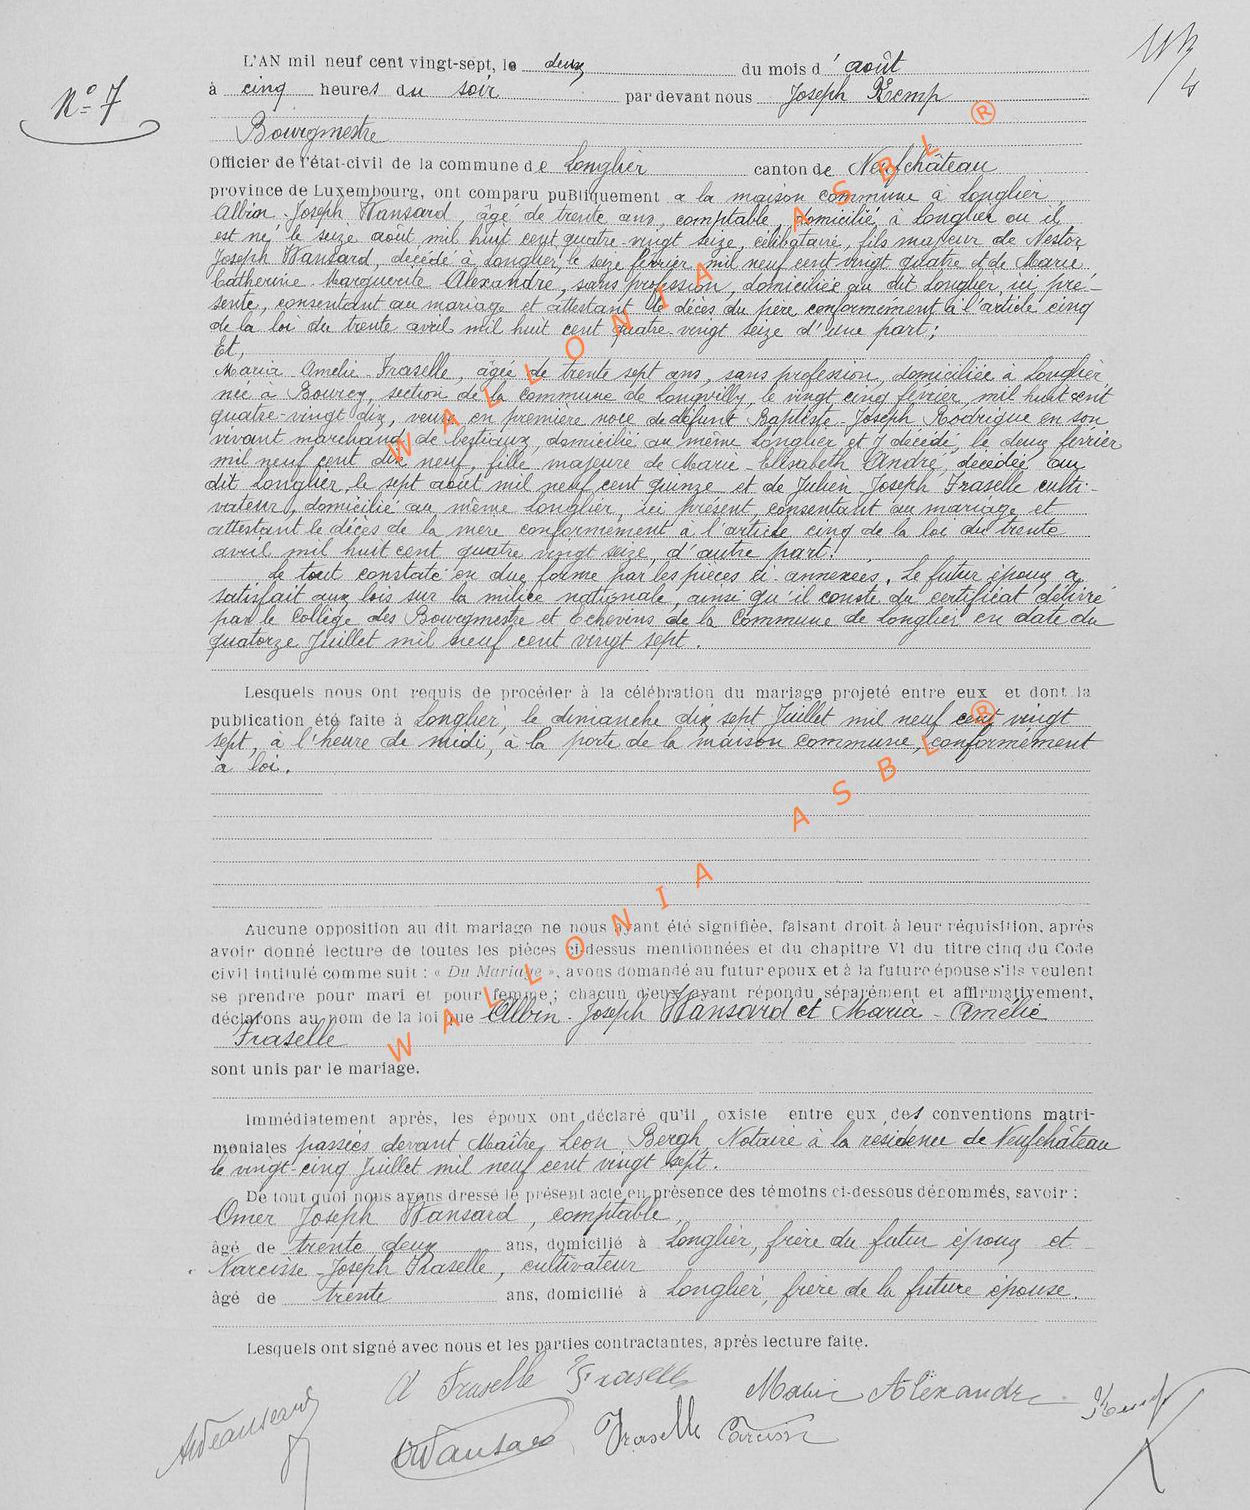 L'AN mil neuf cent vingt-sept, le deux du mois d'août
N° 7
à cinq heures du soir par devant nous Joseph Kemp
Bourgmestre
Officier de l'état-civil de la commune de Longlier canton de Neufchâteau
province de Luxembourg, ont comparu publiquement à la maison commune à Longlier,
Albin-Joseph Wansard, âgé de trente ans, comptable, domicilié à Longlier où il
est né le seize août mil huit cent quatre-vingt seize, célibataire, fils majeur de Nestor
Joseph Wansard, décédé à Longlier, le seize février mil neuf cent vingt quatre et de Marie
Catherine-Marguerite Alexandre, sans profession, domiciliée au dit Longlier, ici pré-
sente, consentant au mariage et attestant le décès du père conformément à l'article cinq
de la loi du trente avril mil huit cent quatre-vingt seize d'une part;
Et,
Maria Amélie Fraselle, âgée de trente sept ans, sans profession, domiciliée à Longlier
née à Bourcy, section de la commune de Longvilly, le vingt cinq février, mil huit cent
quatre-vingt dix, veuve en première noce de défunt Baptiste-Joseph Rodrigue en son
vivant marchand de bestiaux, domicilié au même Longlier et y décédé, le deux février
mil neuf cent dix neuf, fille majeure de Marie-Elisabeth André, décédée au
dit Longlier, le sept août mil neuf cent quinze et de Julien Joseph Fraselle culti-
vateur, domicilié au même Longlier, ici présent, consentant au mariage et
attestant le décès de la mère conformément à l'article cinq de la loi du trente
avril mil huit cent quatre vingt seize, d'autre part.
Le tout constaté en due forme par les pièces ci-annexées. Le futur époux a
satisfait aux lois sur la milice nationale, ainsi qu'il conste du certificat délivré
par le Collège des Bourgmestre et Echevins de la Commune de Longlier en date du
quatorze Juillet mil neuf cent vingt sept.
Lesquels nous ont requis de procéder à la célébration du mariage projeté entre eux et dont la
publication été faite à Longlier, le dimanche dix sept Juillet mil neuf cent vingt
sept, à l'heure de midi, à la porte de la maison commune, conformément
à loi.
Aucune opposition au dit mariage ne nous ayant été signifiée, faisant droit à leur réquisition, après
avoir donné lecture de toutes les pièces ci-dessus mentionnées et du chapitre VI du titre cinq du Code
civil intitulé comme suit : « Du Mariage », avons demandé au futur epoux et à la future épouse s'ils veulent
se prendre pour mari et pour femme ; chacun d'eux ayant répondu séparément et affirmativement,
déclarons au nom de la loi que Albin-Joseph Wansard et Maria-Amélie
Fraselle
sont unis par le mariage.
Immédiatement après, les époux ont déclaré qu'il existe entre eux des conventions matri-
moniales passées devant Maître Léon Bergh, Notaire à la résidence de Neufchâteau
le vingt-cinq Juillet mil neuf cent vingt sept.
De tout quoi nous avons dressé le présent acte en présence des témoins ci-dessous dénommés, savoir :
Omer Joseph Wansard, comptable,
âgé de trente deux ans, domicilié à Longlier, frère du futur époux et
Narcisse-Joseph Fraselle, cultivateur
âgé de trente ans, domicilié à Longlier, frère de la future épouse.
Lesquels ont signé avec nous et les parties contractantes, après lecture faite.
A Fraselle Fraselle Marie Alexandre Kemp
AWansard OWansard Fraselle
WALLONIA ASBL ®
WALLONIA ASBL ®